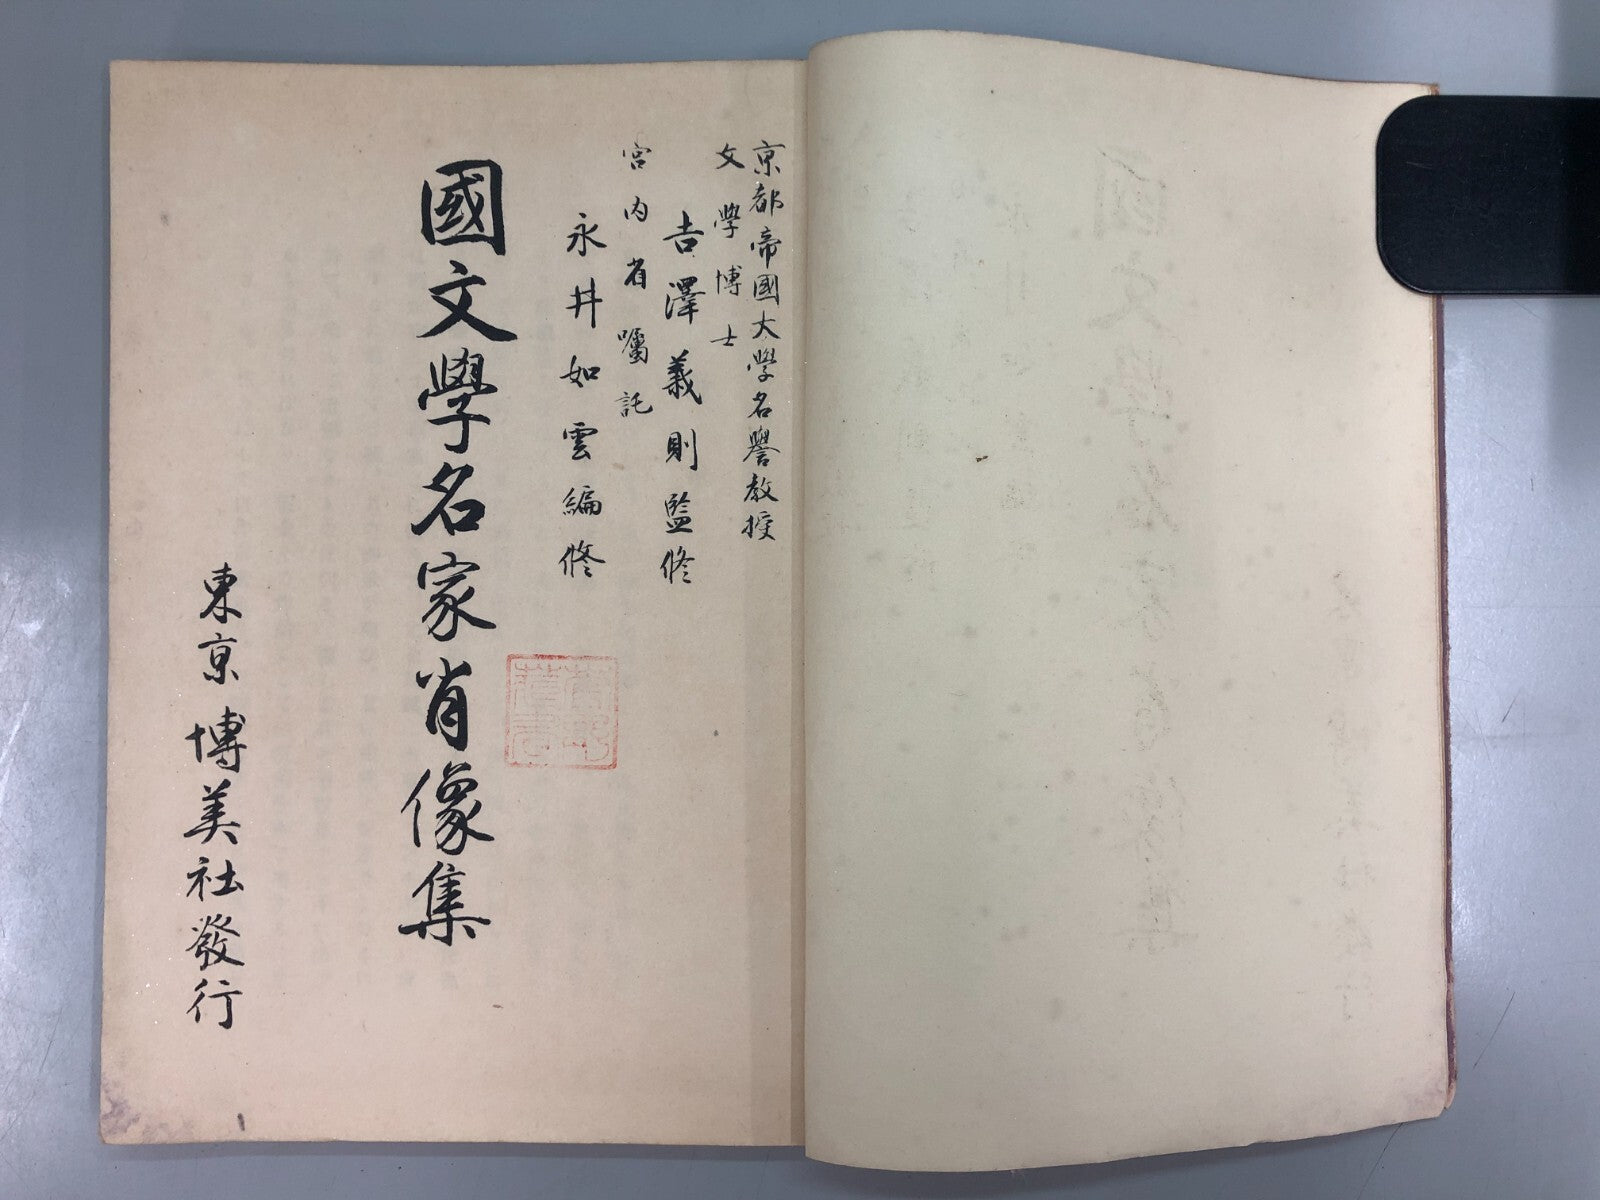 京都帝國大學名譽教授
文學博士
吉澤義則監修
宮内省囑託
永井如雲編修
國文學名家肖像集
東京博美社發行